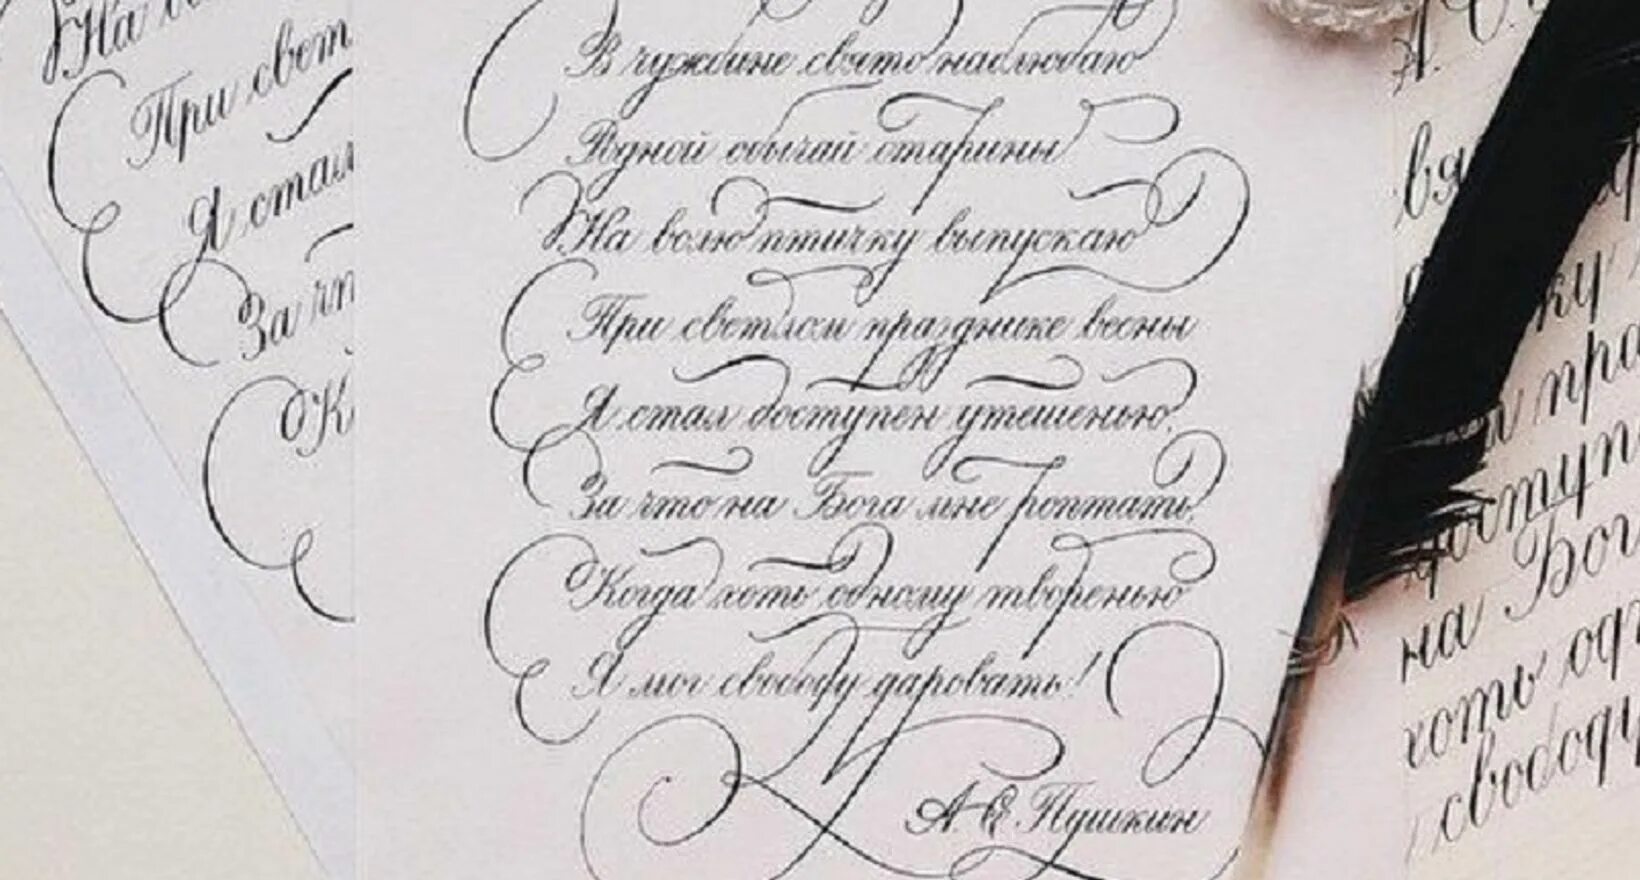 На
При свет
Я стал
За чт
К
В чужбине свято наблюдаю
Родной обычай старины
На волю птичку выпускаю
При светлом празднике весны
Я стал доступен утешенью,
За что на Бога мне роптать,
Когда хоть одному творенью
Я мог свободу даровать!
А. С. Пушкин
вя
ку
пра
доступ
на Бог
хоть од
свободу